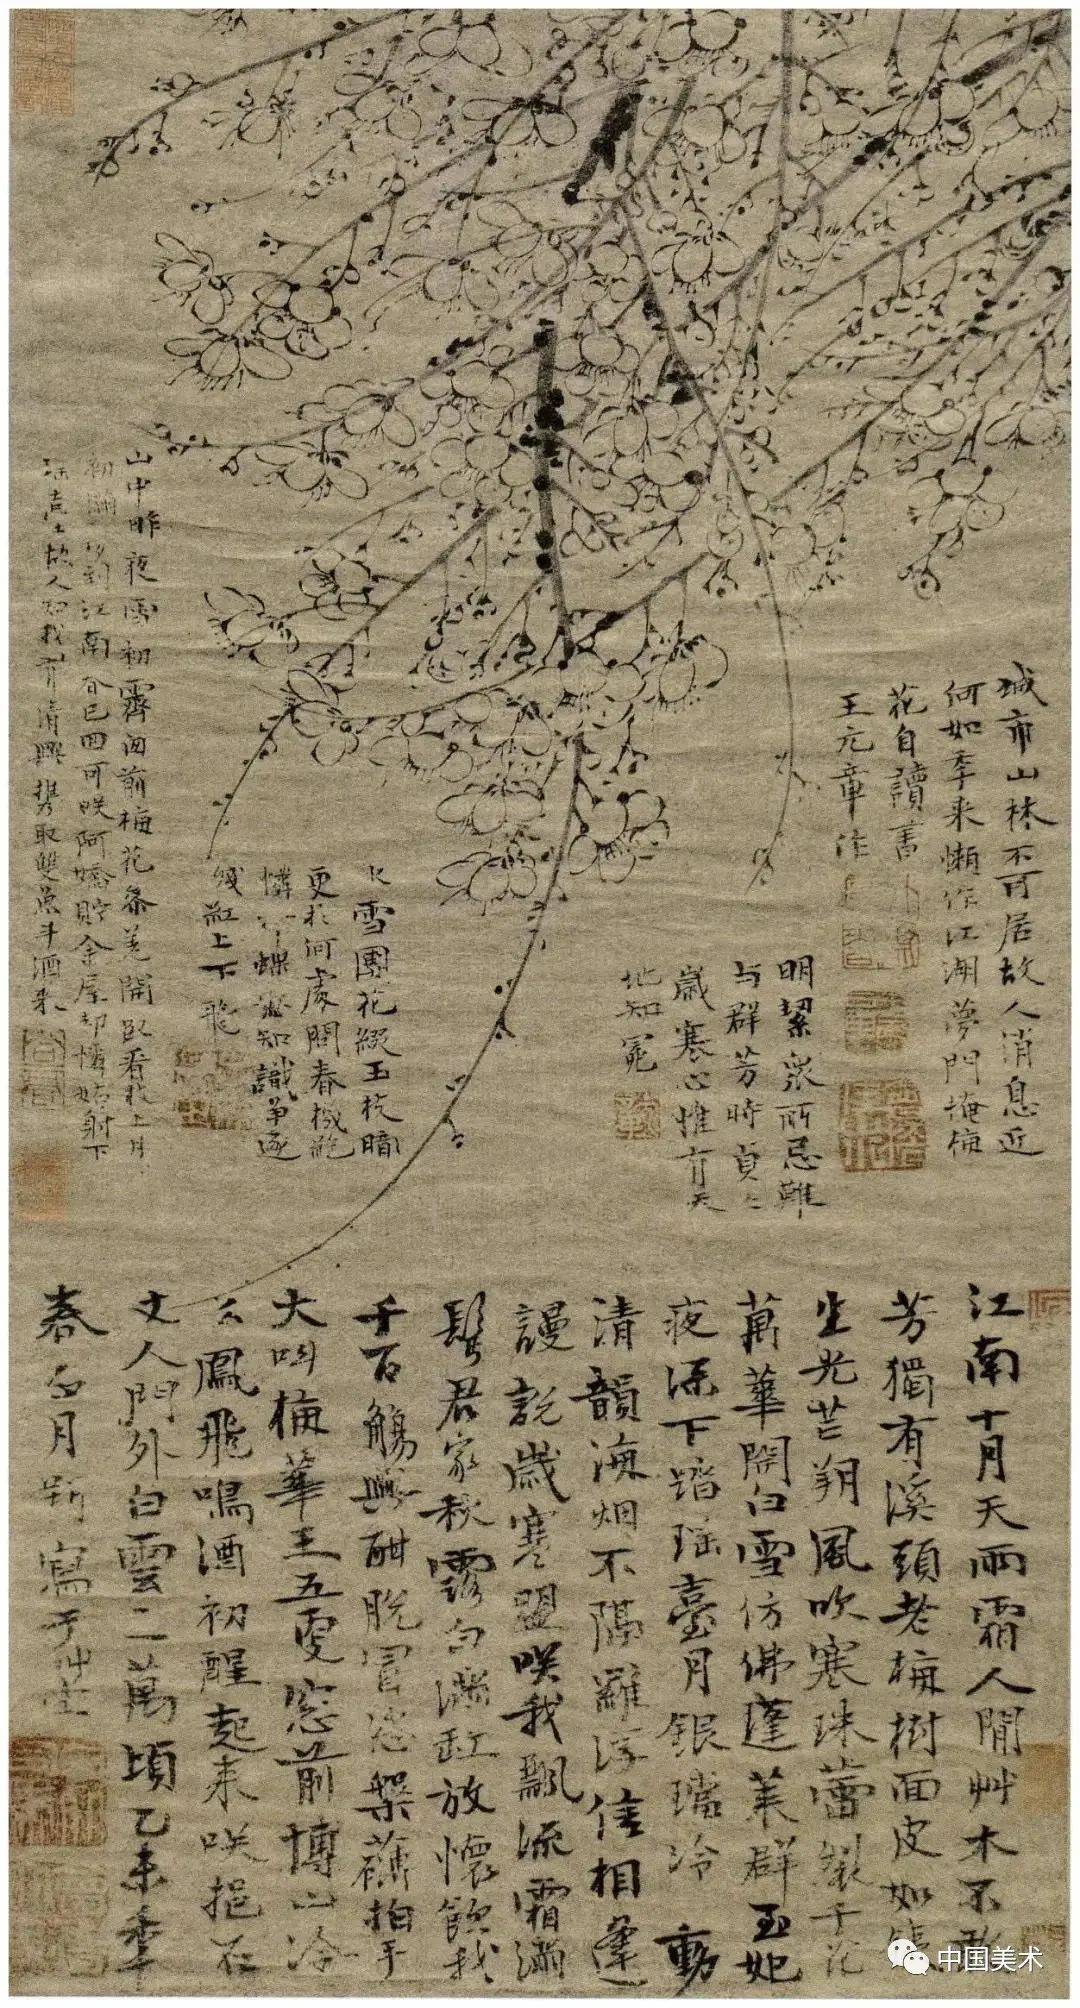 城市山林不可居故人消息近
何如年来懶作江湖夢門掩梅
花自讀書
王元章作
明潔衆所忌難
与群芳時貞心
歲寒心惟有天
地知
雪團花綴玉枝暗
更於何處問春機
憐蝶知識爭逐
上下飛
山中昨夜雨初霽前梅花參差開臥看枝上月
初到江南春已回可咲阿嬌貯金屋却憐姑射下
故人知我有清興携取雙魚斗酒来
江南十月天雨霜人間艸木不敢
芳獨有溪頭老梅樹面皮如鐵
生光芒朔風吹寒珠蕾裂千花
萬華開白雪仿佛蓬萊群玉妃
夜深下踏瑶臺月銀璫冷動
清韻海烟不隔羅浮信相逢
謾說歲寒盟咲我飄流霜滿
鬢君家秋露白滿缸放懷飲我
千百觴興酣脫冒恣槃礴拍手
大叫梅華王五更窓前博山冷
么鳳飛鳴酒初醒起来咲挹石
丈人門外白雲二萬頃乙未年
春正月
寫于艸堂
中国美术